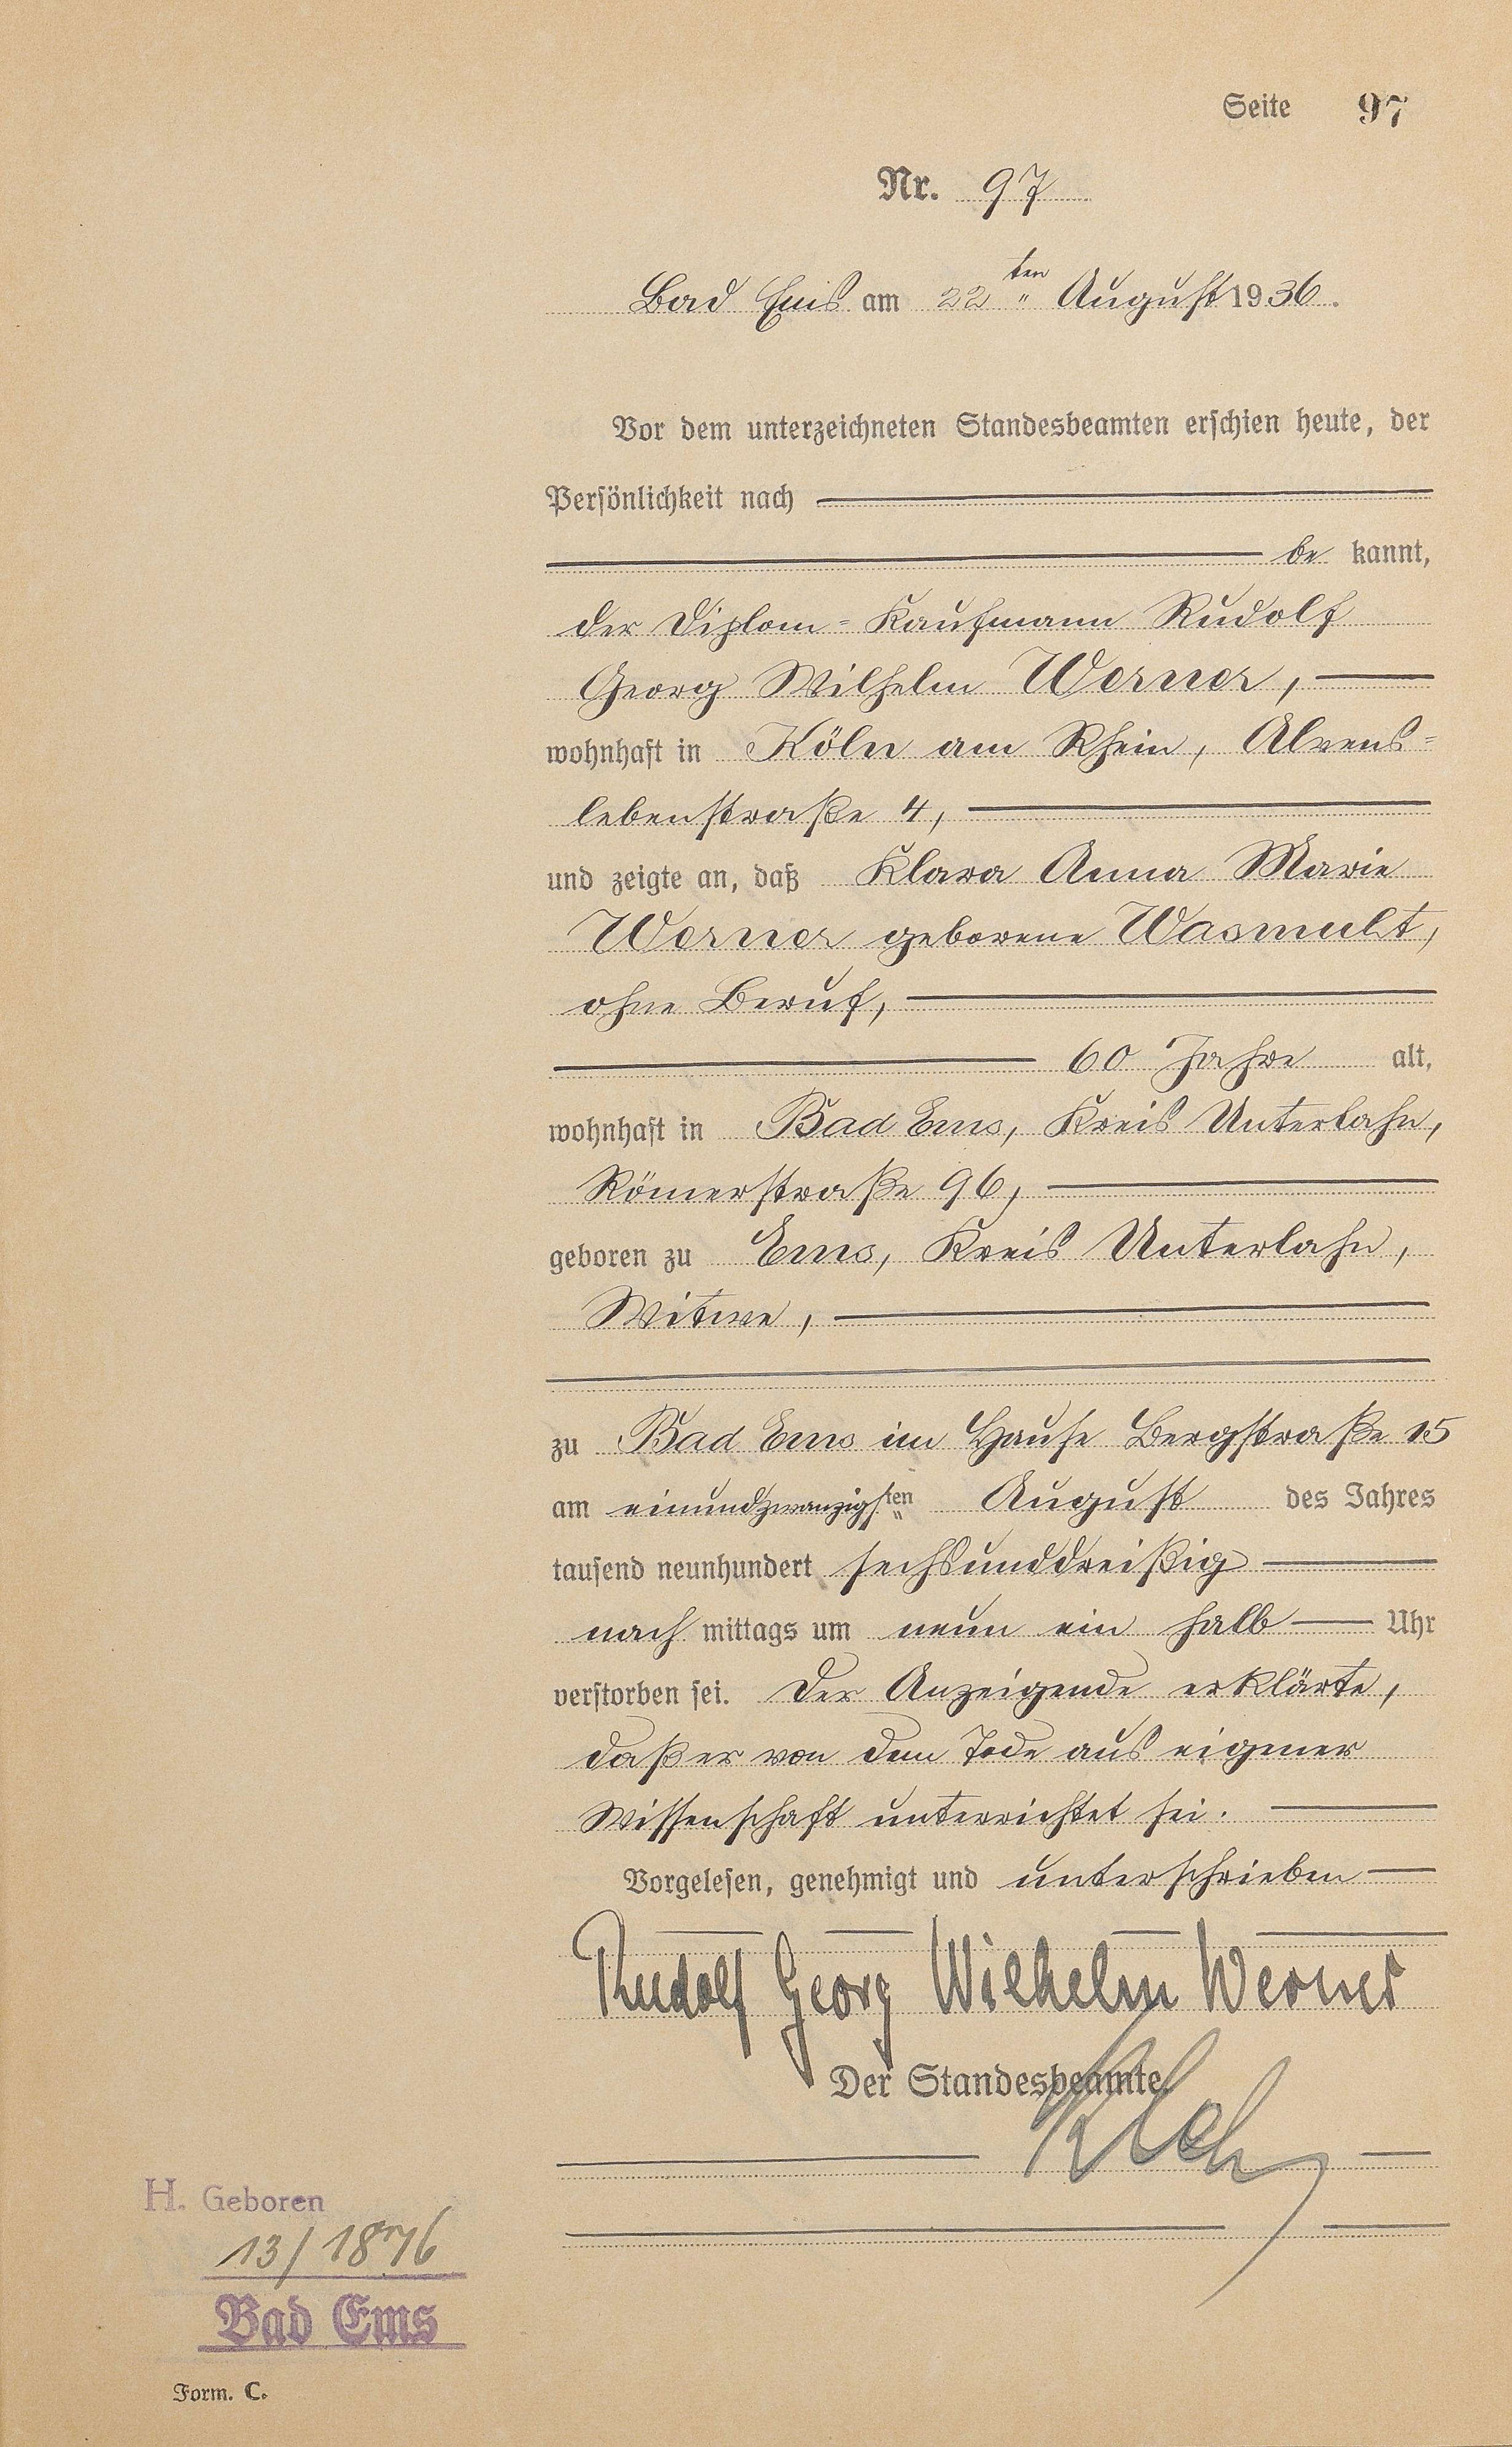 Seite 97
Nr. 97
Bad Ems am 22ten August 1936.
Vor dem unterzeichneten Standesbeamten erschien heute, der
Persönlichkeit nach
be kannt,
der Diplom=Kaufmann Rudolf
Georg Wilhelm Werner,
wohnhaft in Köln am Rhein, Alvens=
lebenstraße 4,
und zeigte an, daß Klara Anna Marie
Werner geborene Wasmuht,
ohne Beruf,
60 Jahre alt,
wohnhaft in Bad Ems, Kreis Unterlahn,
Römerstraße 96,
geboren zu Ems, Kreis Unterlahn,
Witwe,
zu Bad Ems im Hause Bergstraße 15
am einundzwanzigsten August des Jahres
tausend neunhundert sechsunddreißig
nach mittags um neun ein halb Uhr
verstorben sei. Der Anzeigende erklärte,
daß er von dem Tode aus eigener
Wissenschaft unterrichtet sei.
Vorgelesen, genehmigt und unterschrieben
Rudolf Georg Wilhelm Werner
Der Standesbeamte.
H. Geboren
13/1876
Bad Ems
Form. C.